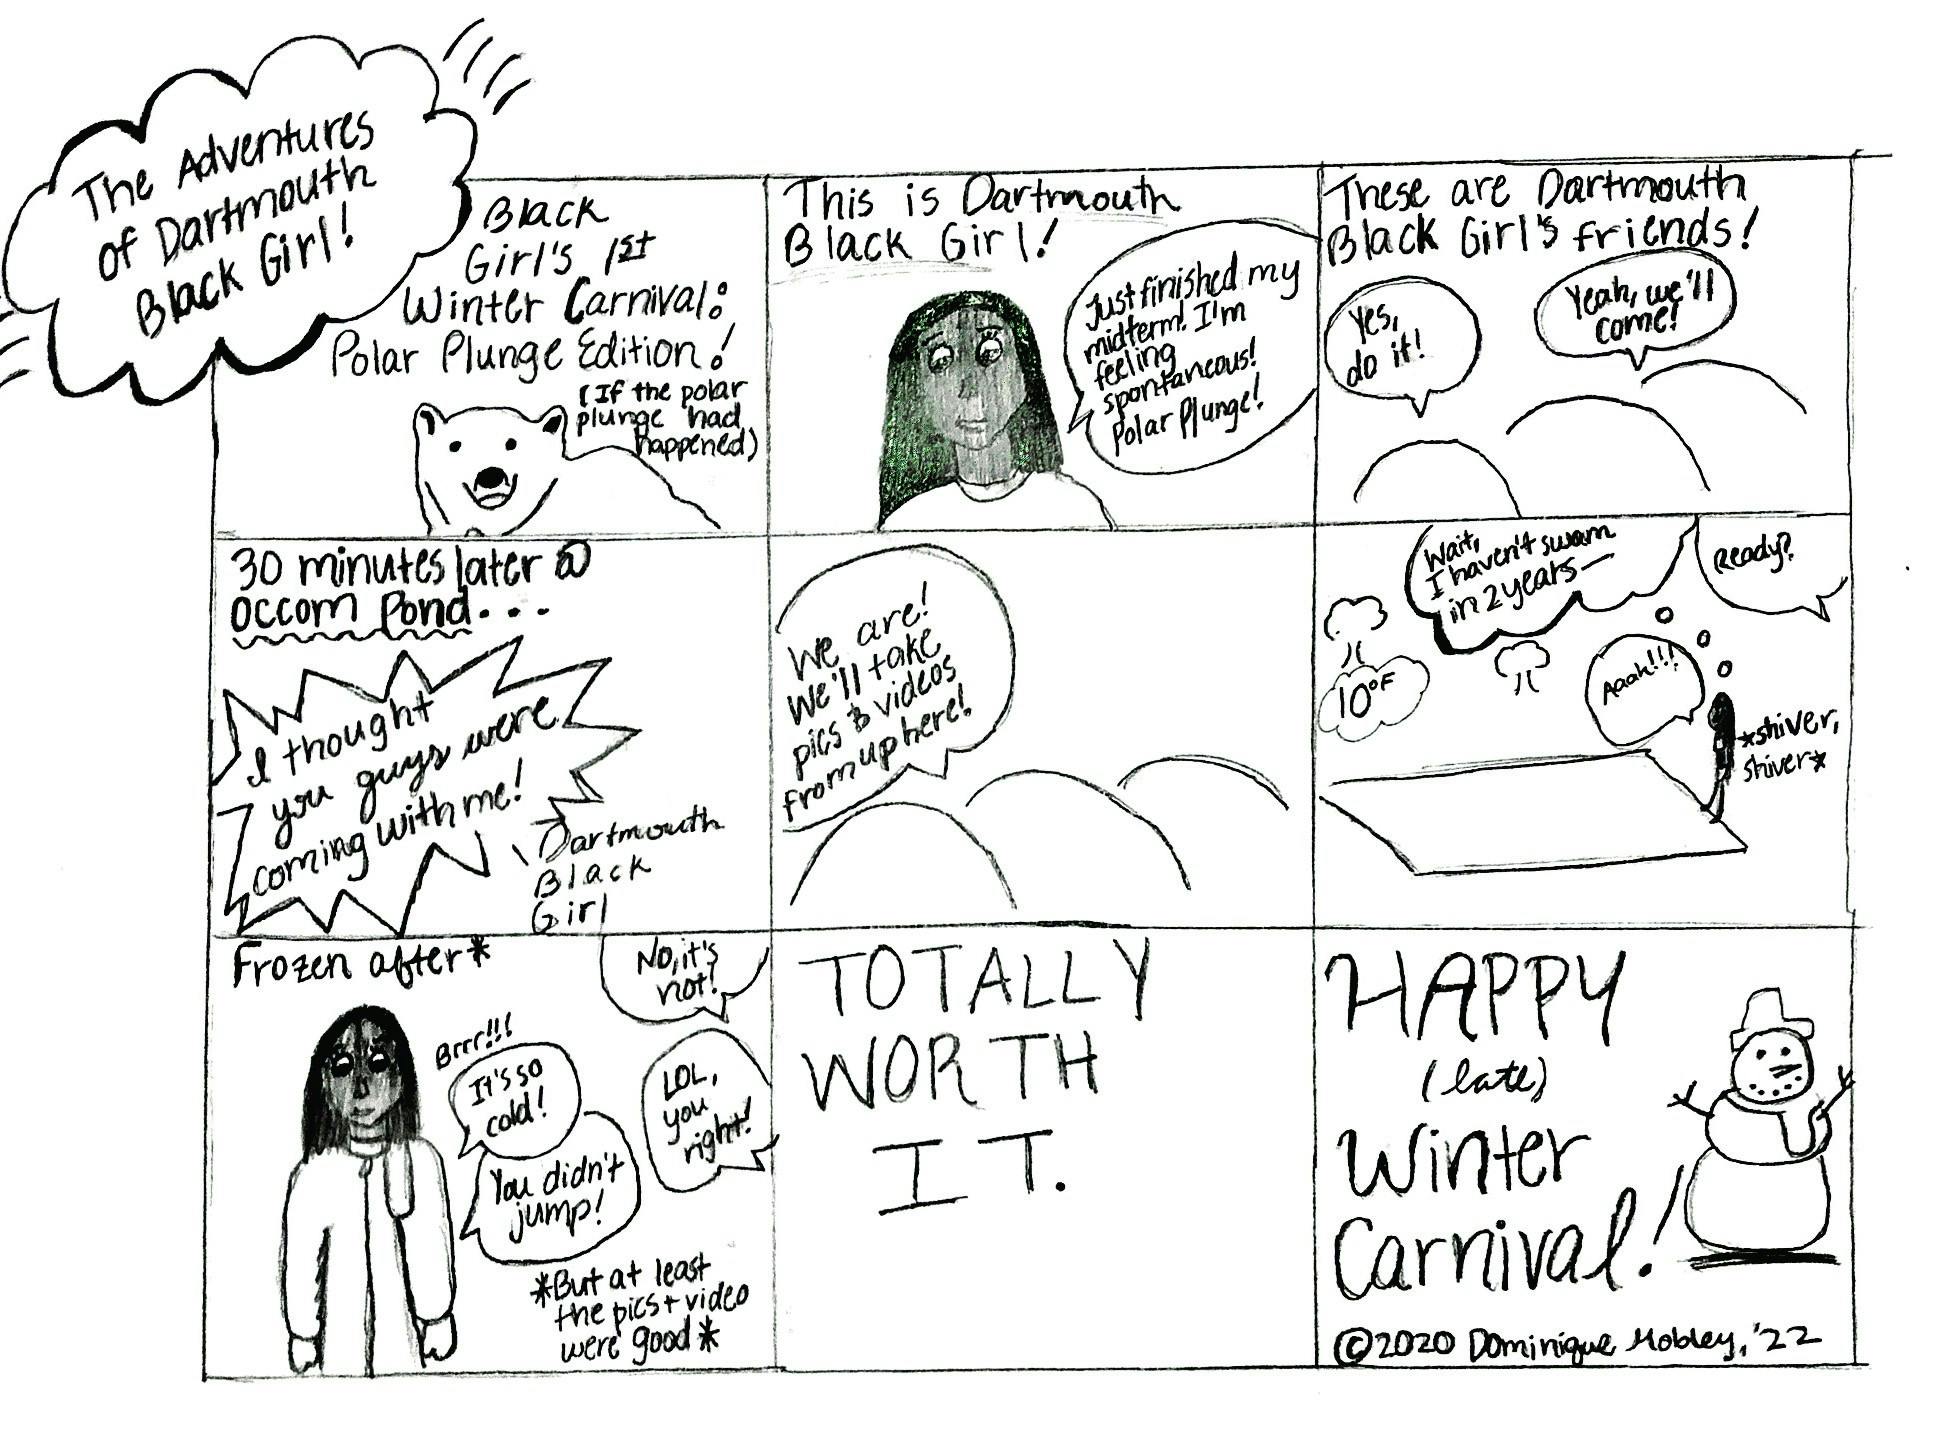 The Adventures
of Dartmouth
Black Girl!
Black
Girl's 1st
Winter Carnival:
Polar Plunge Edition!
(If the polar
plunge had
happened)
This is Dartmouth
Black Girl!
Just finished my
midterm! I'm
feeling
spontaneous!
Polar Plunge!
These are Dartmouth
Black Girl's friends!
Yes,
do it!
Yeah, we'll
come!
30 minutes later @
Occom Pond...
I thought
you guys were
coming with me!
Dartmouth
Black
Girl
We are!
We'll take
pics & videos
from up here!
Wait,
I haven't swam
in 2 years—
Ready?
10°F
Aaah!!!
*shiver,
shiver*
Frozen after*
Brrr!!!
It's so
cold!
No, it's
not!
You didn't
jump!
LOL,
you
right!
*But at least
the pics + video
were good*
TOTALLY
WORTH
IT.
HAPPY
(late)
Winter
Carnival!
©2020 Dominique Mobley, '22